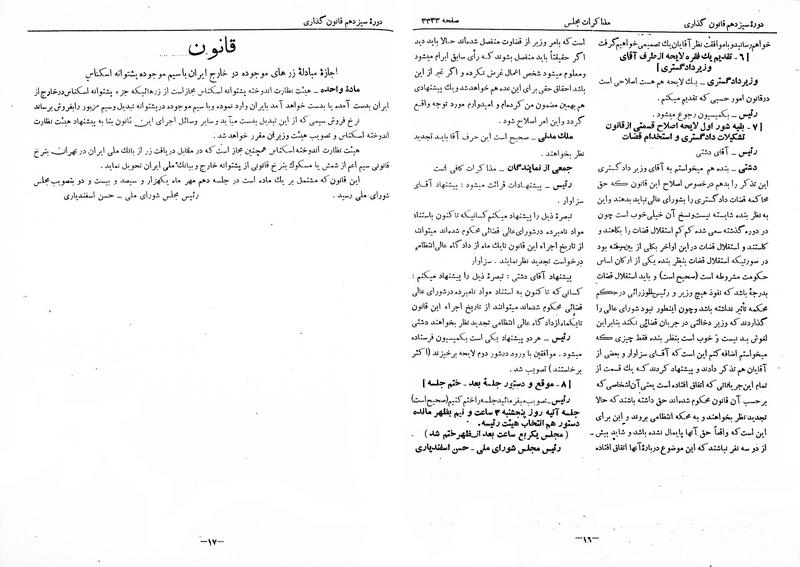 دورهٔ سیزدهم قانون گذاری
مذاکرات مجلس
صفحه ۳۳۳۳
خواهم رسانید و با موافقت نظر آقایان یك تصمیمی خواهیم گرفت
[۶ - تقدیم یك فقره لایحه از طرف آقای
وزیر دادگستری]
وزیر دادگستری ــ یك لایحه هم هست اصلاحی است
در قانون امور حسبی که تقدیم میکنم .
رئیس ــ بکمیسیون رجوع میشود .
[۷ - بقیه شور اول لایحه اصلاح قسمتی از قانون
تشکیلات دادگستری و استخدام قضات
رئیس ــ آقای دشتی
دشتی ــ بنده هم میخواستم به آقای وزیر دادگستری
این تذکر را بدهم در خصوص اصلاح این قانون که حق
محاکمه قضات دادگستری را بشورای عالی نباید بدهند و این
به نظر بنده شایسته نیست و نسخ آن خیلی خوب است چون
در دوره گذشته سعی شده کم کم استقلال قضات را بکاهند و
کاستند و استقلال قضات در این اواخر بکلی از بین رفته بود
در صورتیکه استقلال قضات بنظر بنده یکی از ارکان اساس
حکومت مشروطه است (صحیح است) و باید استقلال قضات
بدرجهٔ باشد که نفوذ هیچ وزیر و رئیس الوزرائی در حکم
محکمه تأثیر نداشته باشد و چون اینطور نبود شورای عالی را
گذاردند که وزیر دخالتی در جریان قضائی نکند بنابراین
لغوش بد نیست و خوب است بنظر بنده فقط چیزی که
میخواستم اضافه کنم این است که آقای سزاوار و بعضی از
آقایان هم تذکر دادند و پیشنهاد کردند که یك قسمت از
تمام این جریاناتی که اتفاق افتاده است یعنی آن اشخاصی که
بر حسب آن قانون محکوم شده‌اند حق داشته باشند که حالا
تجدید نظر بخواهند و به محکمه انتظامی بروند و این برای
این است که واقعاً حق آنها پایمال نشده باشد و شاید بیش
از دو سه نفر نباشند که این موضوع دربارهٔ آنها اتفاق افتاده
است که بامر وزیر از قضاوت منفصل شده‌اند حالا باید دید
اگر حقیقتاً باید منفصل بشوند که رأی سابق ابرام میشود
و معلوم میشود شخص اعمال غرض نکرده و اگر غیر از این
باشد احقاق حقی برای این عده هم خواهد شد و یك پیشنهادی
هم بهمین مضمون من کرده‌ام و امیدوارم مورد توجه واقع
گردد و این امر اصلاح شود .
ملك مدنی ــ صحیح است این حرف آقا باید تجدید
نظر بخواهند .
جمعی از نمایندگان ــ مذاکرات کافی است
رئیس ــ پیشنهادات قرائت میشود : پیشنهاد آقای
سزاوار .
تبصرهٔ ذیل را پیشنهاد میکنم کسانیکه تا کنون باستناد
مواد نامبرده در شورای عالی قضائی محکوم شده‌اند میتوانند
از تاریخ اجراء این قانون تا یك ماه از دادگاه عالی انتظامی
درخواست تجدید نظر نمایند . سزاوار
پیشنهاد آقای دشتی : تبصرهٔ ذیل را پیشنهاد میکنم :
کسانی که تا کنون به استناد مواد نامبرده در شورای عالی
قضائی محکوم شده‌اند میتوانند از تاریخ اجراء این قانون
تا یکماه از دادگاه عالی انتظامی تجدید نظر بخواهند دشتی
رئیس ــ هر دو پیشنهاد یکی است بکمیسیون فرستاده
میشود . موافقین با ورود در شور دوم لایحه برخیزند (اکثر
برخاستند) تصویب شد .
[۸ - موقع و دستور جلسهٔ بعد - ختم جلسه]
رئیس ــ تصویب میفرمائید جلسه را ختم کنیم (صحیح است)
جلسه آتیه روز پنجشنبه ۳ ساعت و نیم بظهر مانده
دستور هم انتخاب هیئت رئیسه .
(مجلس یکربع ساعت بعد از ظهر ختم شد)
رئیس مجلس شورای ملی - حسن اسفندیاری
ـ۱۶ـ
دورهٔ سیزدهم قانون گذاری
قانون
اجازهٔ مبادلهٔ زرهای موجوده در خارج ایران با سیم موجوده پشتوانه اسکناس
مادهٔ واحده ــ هیئت نظارت اندوخته پشتوانه اسکناس مجاز است از زرهائیکه جزء پشتوانه اسکناس در خارج از
ایران بدست آمده یا بدست خواهد آمد بایران وارد نموده و با سیم موجوده در پشتوانه تبدیل و سیم مزبور را بفروش برساند
نرخ فروش سیمی که از این تبدیل بدست میآید و سایر وسائل اجرای این قانون بنا به پیشنهاد هیئت نظارت
اندوخته اسکناس و تصویب هیئت وزیران مقرر خواهد شد .
هیئت نظارت اندوخته اسکناس همچنین مجاز است که در مقابل دریافت زر از بانك ملی ایران در تهران بنرخ
قانونی سیم اعم از شمش یا مسکوك بنرخ قانونی از پشتوانه خارج و ببانك ملی ایران تحویل نماید .
این قانون که مشتمل بر یك ماده است در جلسه دهم مهر ماه یکهزار و سیصد و بیست و دو بتصویب مجلس
شورای ملی رسید .
رئیس مجلس شورای ملی - حسن اسفندیاری
ـ۱۷ـ